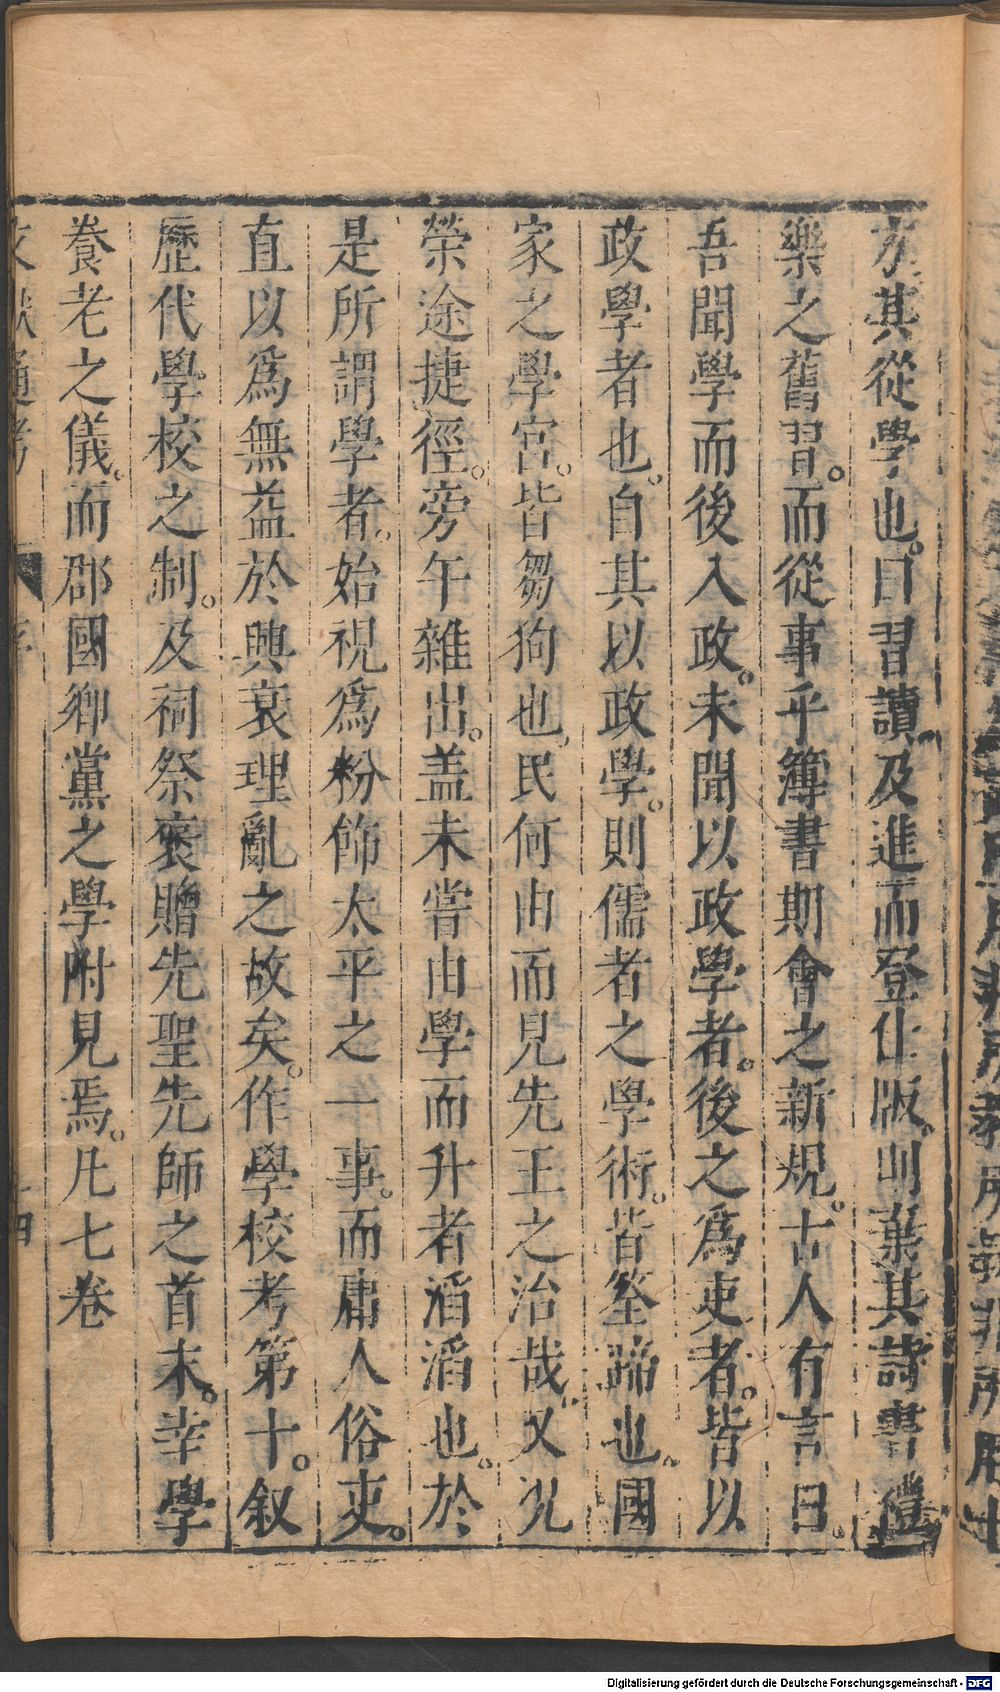 方其從學也。曰習讀及進而登仕版。則棄其詩書禮
樂之舊習。而從事乎簿書期會之新規。古人有言曰。
吾聞學而後入政。未聞以政學者。後之爲吏者。皆以
政學者也。自其以政學。則儒者之學術。皆筌蹄也。國
家之學宮。皆芻狗也。民何由而見先王之治哉。又况
榮途捷徑。旁午雜出。盖未嘗由學而升者滔滔也。於
是所謂學者。始視爲粉飾太平之一事。而庸人俗吏。
直以爲無益於興衰理亂之故矣。作學校考第十。叙
歷代學校之制。及祠祭褒贈先聖先師之首末。幸學
養老之儀。而郡國鄉黨之學附見焉。凡七卷
文獻通考 序
Digitalisierung gefördert durch die Deutsche Forschungsgemeinschaft - DFG